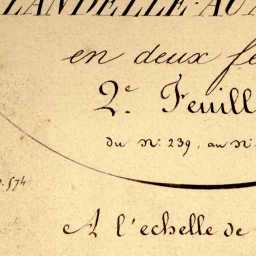 LANDELLE·AU
en deux fe
2.e Feuill
du N.o 239, au N.o
. 574
A l'échelle de